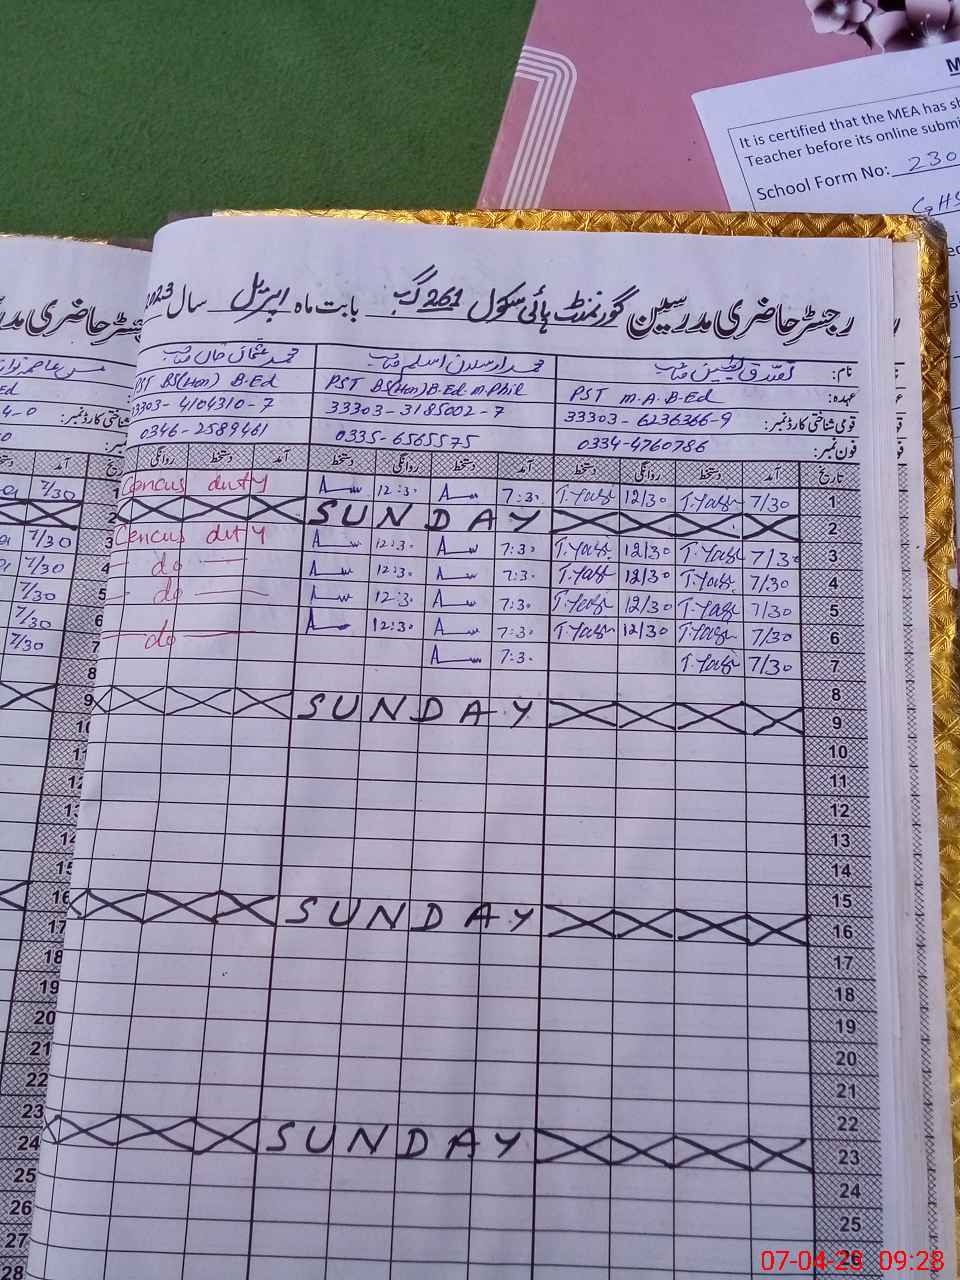 M
It is certified that the MEA has sh
Teacher before its online submi
School Form No: 230
GHS
رجسٹر حاضری مدرسین گورنمنٹ ہائی سکول 261 گب بابت ماہ اپریل سال 2023
نام: تصدق یٰسین صاحب محمد ارسلان اسلم صاحب محمد عثمان خان صاحب
عہدہ: PST M.A. B.Ed PST BS(Hon) B.Ed M.Phil PST BS(Hon) B.Ed
قومی شناختی کارڈ نمبر: 33303-6236366-9 33303-3185002-7 33303-4104310-7
فون نمبر: 0334-4760786 0335-6565575 0346-2589461
تاریخ آمد دستخط روانگی دستخط آمد دستخط روانگی دستخط آمد دستخط روانگی
1 7/30 12/30 7:30 12:30 Cencus duty
2 SUNDAY
3 7/30 12/30 7:30 12:30 Cencus duty
4 7/30 12/30 7:30 12:30 do
5 7/30 12/30 7:30 12:30 do
6 7/30 12/30 7:30 12:30 do
7 7/30 7:30
8
9 SUNDAY
10
11
12
13
14
15
16 SUNDAY
17
18
19
20
21
22
23 SUNDAY
24
25
26
رجسٹر حاضری
Ed
آمد دستخط تاریخ
1 7/30
2
3 7/30
4 7/30
5 7/30
6 7/30
7 7/30
8
9
10
11
12
13
14
15
16
17
18
19
20
21
22
23
24
25
26
27
28
07-04-23 09:28